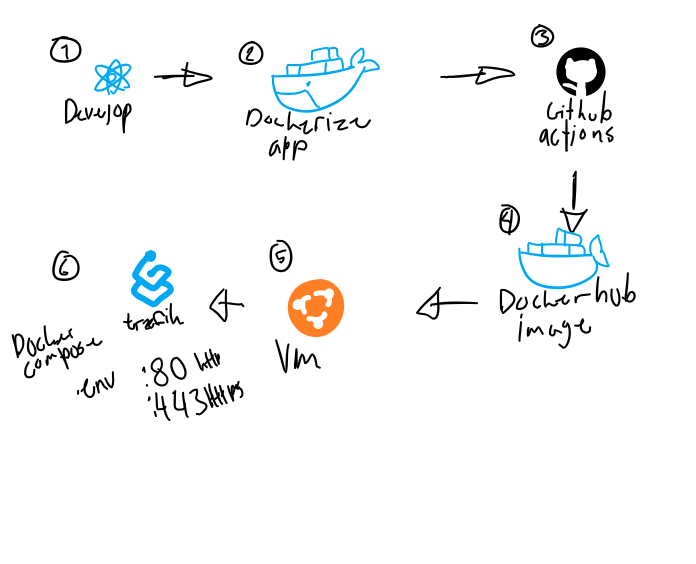 1
Develop
2
Dockerize
app
3
Github
actions
4
Dockerhub
image
5
Vm
6
traefik
Docker
compose
.env
:80 http
:443 Https